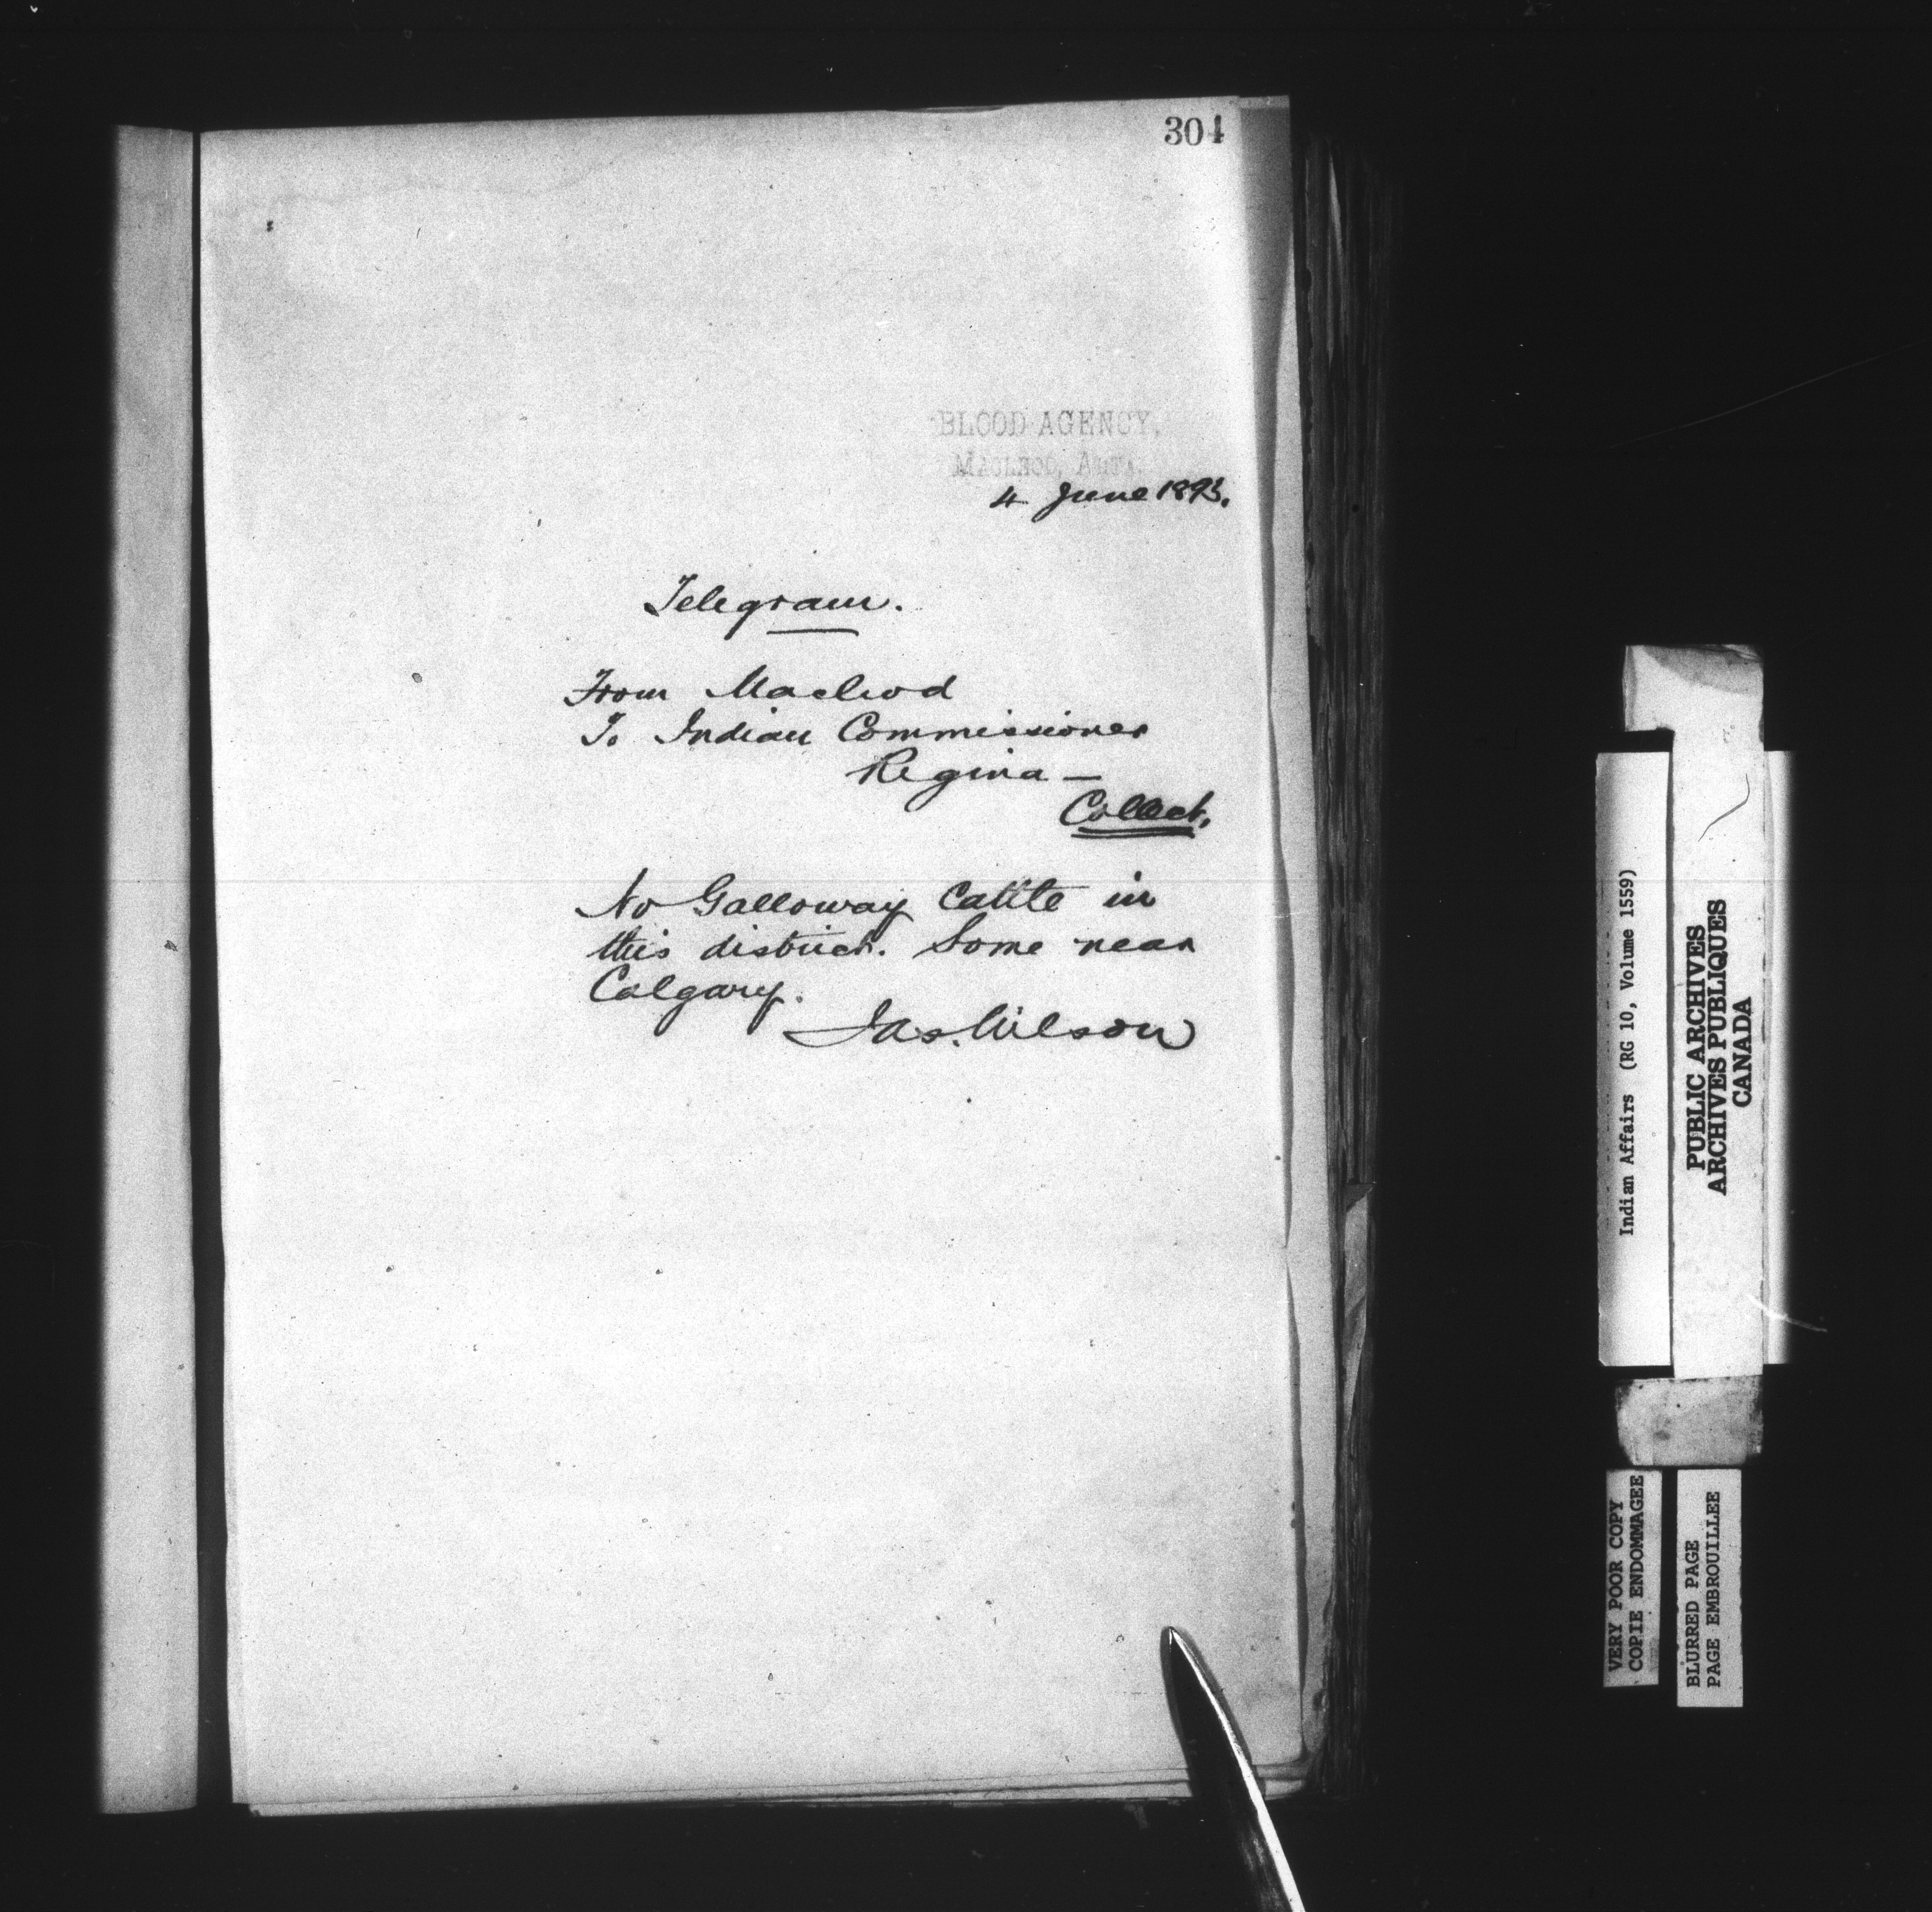 304
BLOOD AGENCY,
MACLEOD, ALTA.
4 June 1895.
Telegram.
From Macleod
To Indian Commissioner
Regina —
Collect.
No Galloway Cattle in
this district. Some near
Calgary.
Jas. Wilson
Indian Affairs (RG 10, Volume 1559)
PUBLIC ARCHIVES
ARCHIVES PUBLIQUES
CANADA
VERY POOR COPY
COPIE ENDOMMAGEE
BLURRED PAGE
PAGE EMBROUILLEE